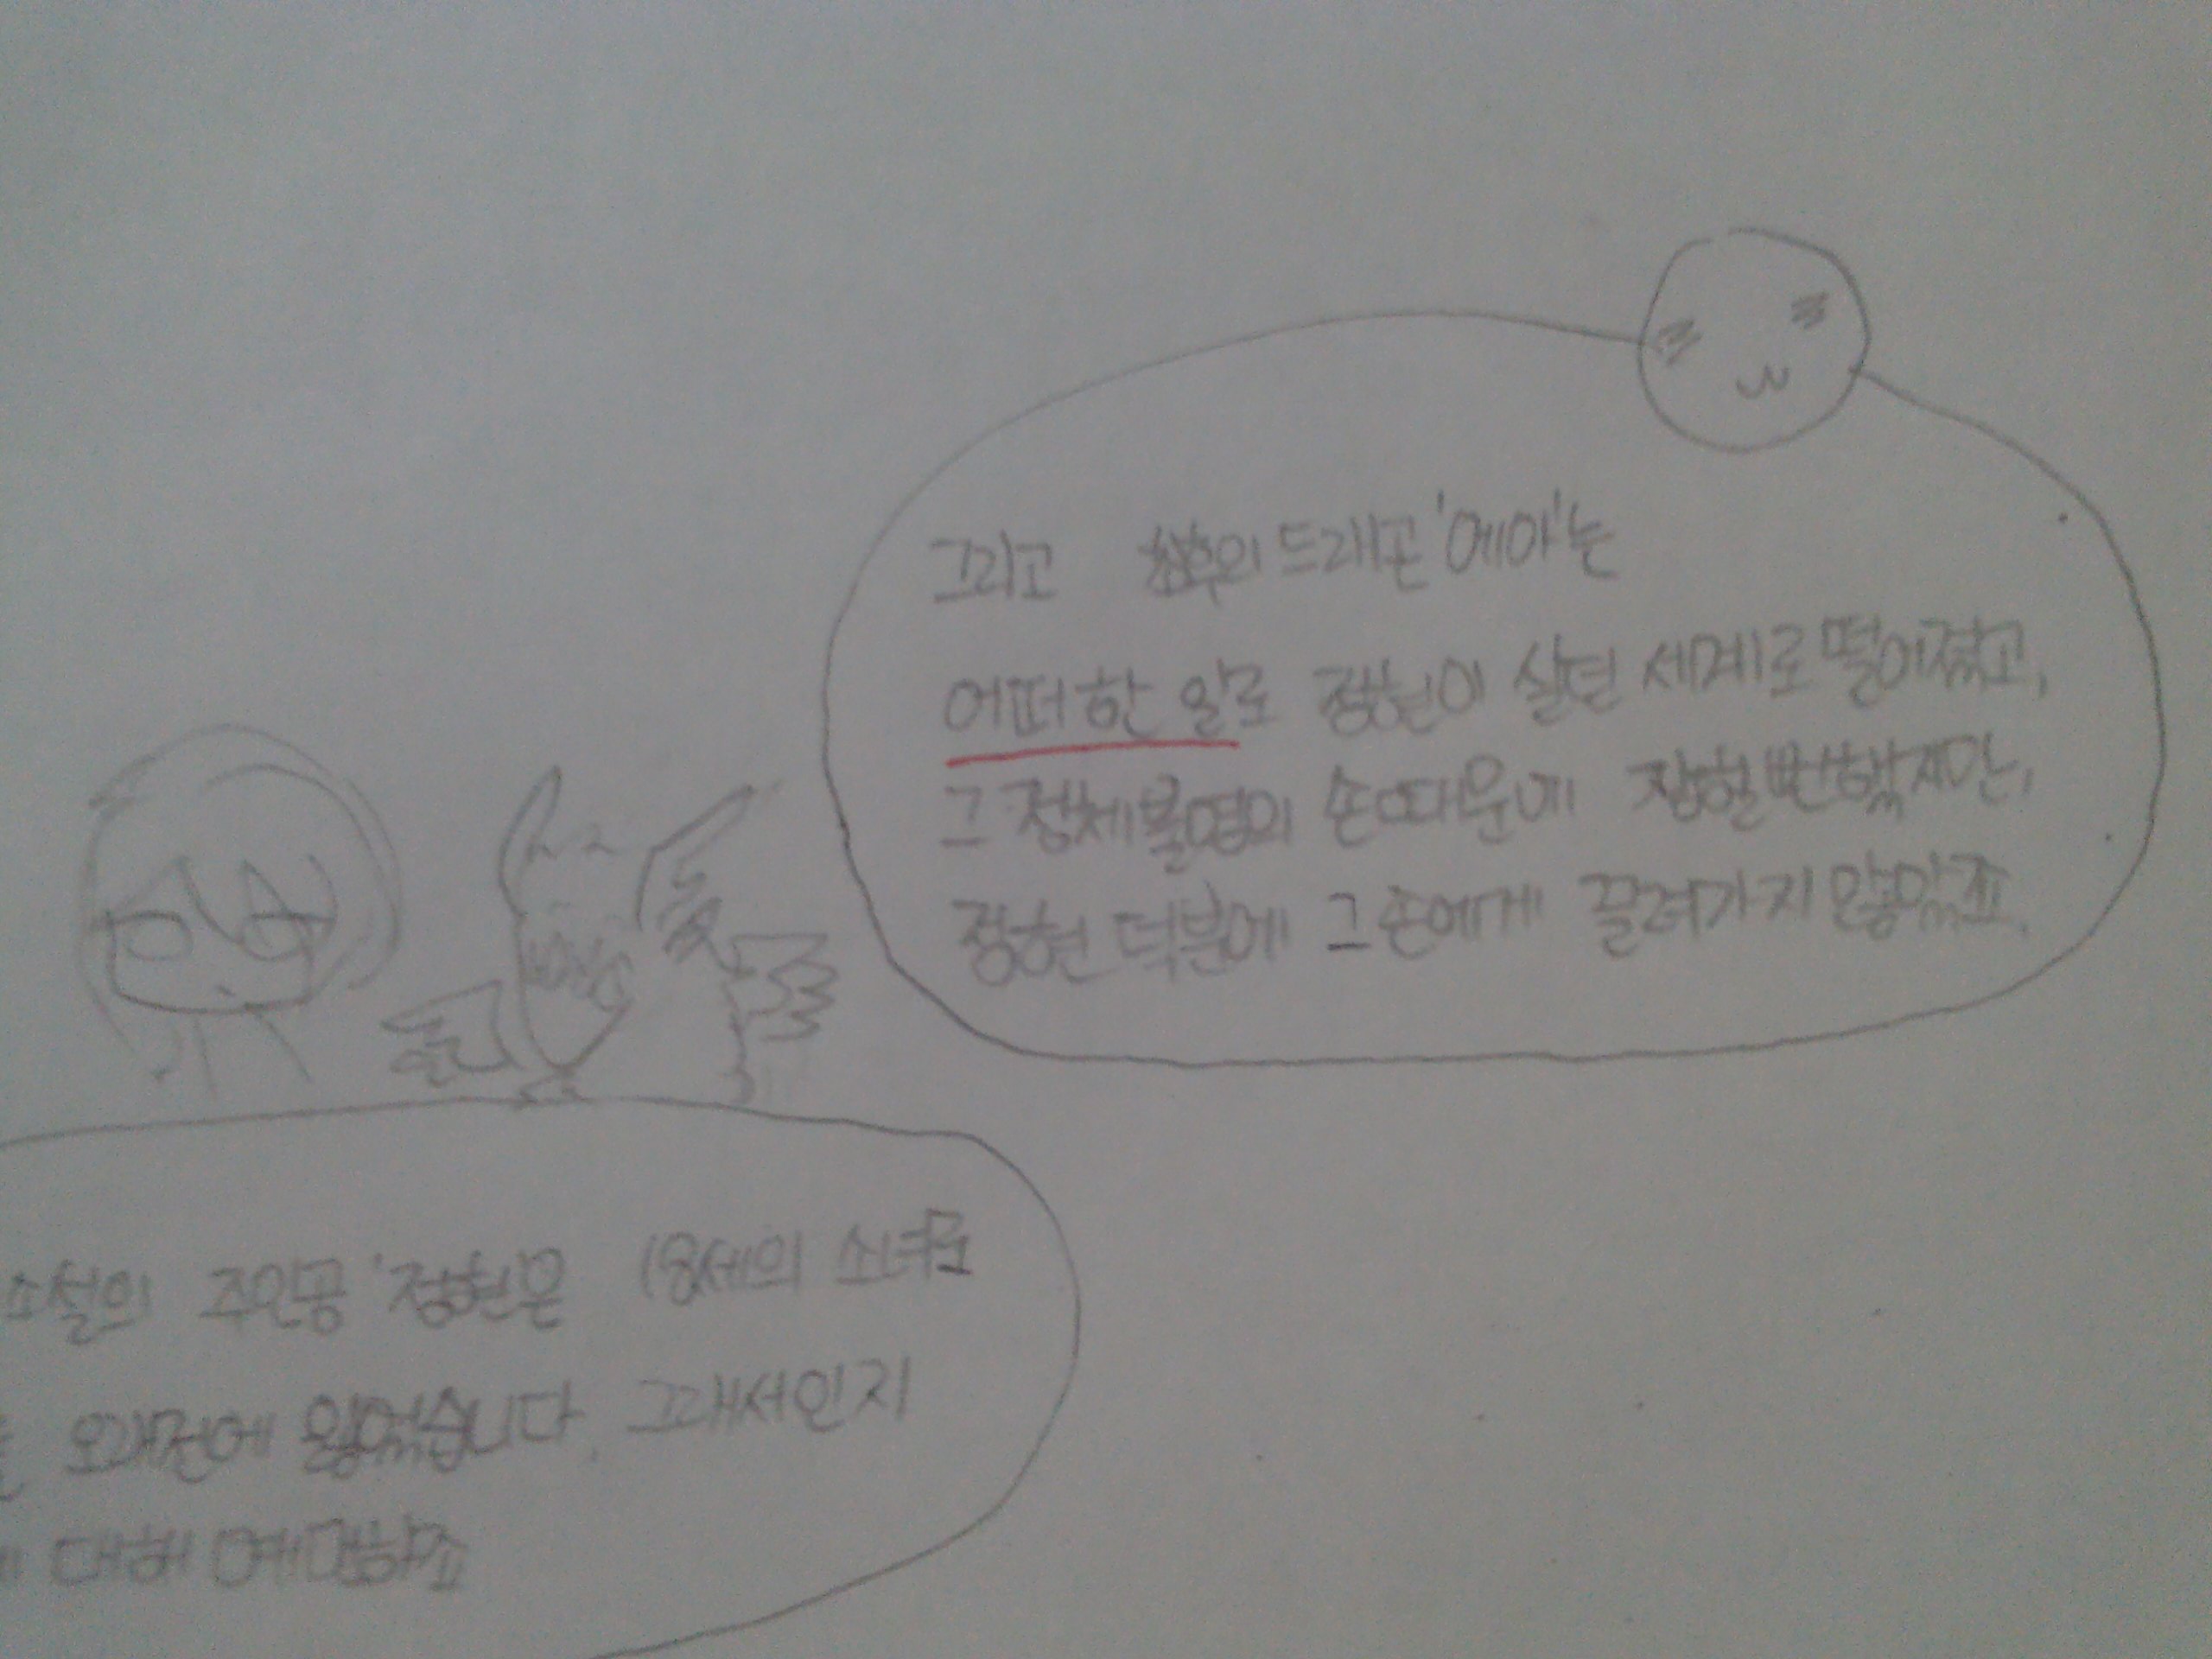 그리고 최후의 드래곤 '에아'는
어떠한 일로 정현이 살던 세계로 떨어졌고,
그 정체불명의 손때문에 잡힐뻔했지만,
정현 덕분에 그 손에게 끌려가지 않았죠.
소설의 주인공 '정현'은 18세의 소녀로
오래전에 잃었습니다. 그래서인지
대해 예민하죠